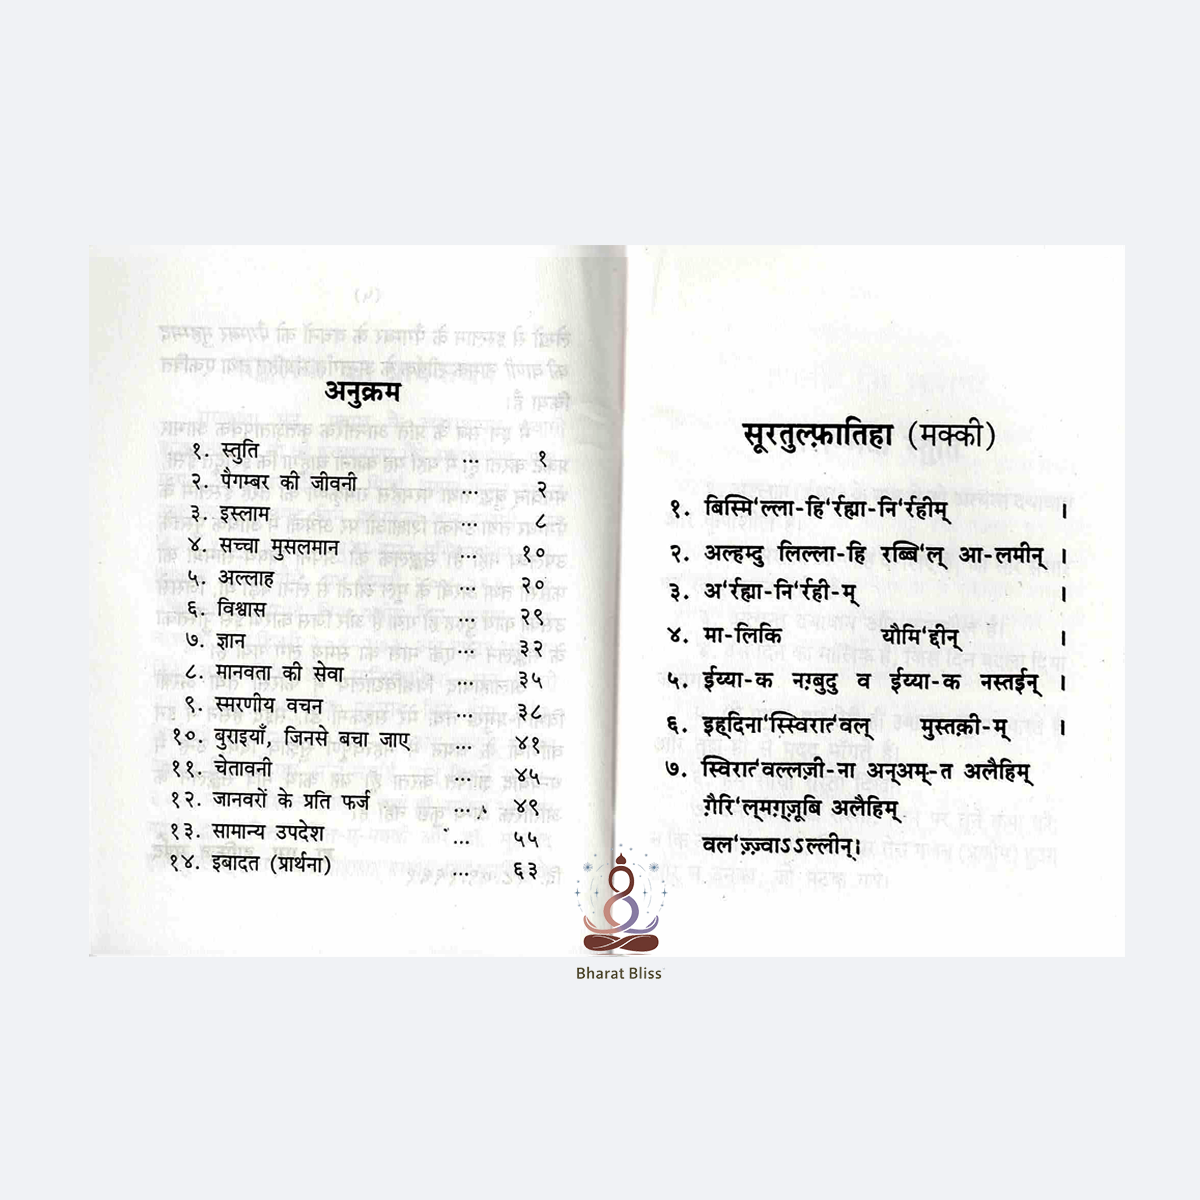 अनुक्रम
१. स्तुति ... १
२. पैगम्बर की जीवनी ... २
३. इस्लाम ... ८
४. सच्चा मुसलमान ... १०
५. अल्लाह ... २०
६. विश्वास ... २९
७. ज्ञान ... ३२
८. मानवता की सेवा ... ३५
९. स्मरणीय वचन ... ३८
१०. बुराइयाँ, जिनसे बचा जाए ... ४१
११. चेतावनी ... ४५
१२. जानवरों के प्रति फर्ज ... ४९
१३. सामान्य उपदेश ... ५५
१४. इबादत (प्रार्थना) ... ६३
सूरतुल्फ़ातिहा (मक्की)
१. बिस्मि‘ल्ला-हि‘र्रह्मा-नि‘र्रहीम् ।
२. अल्हम्दु लिल्ला-हि रब्बि‘ल् आ-लमीन् ।
३. अ‘र्रह्मा-नि‘र्रही-म् ।
४. मा-लिकि यौमि‘द्दीन् ।
५. ईय्या-क नग़्बुदु व ईय्या-क नस्तईन् ।
६. इह्दिना‘स्स्विरात‘वल् मुस्तक़ी-म् ।
७. स्विरात‘वल्लज़ी-ना अन्अम्-त अलैहिम्
ग़ैरि‘ल्मग़्ज़ूबि अलैहिम्
वल‘ज़्ज़्वाऽऽल्लीन्।
Bharat Bliss